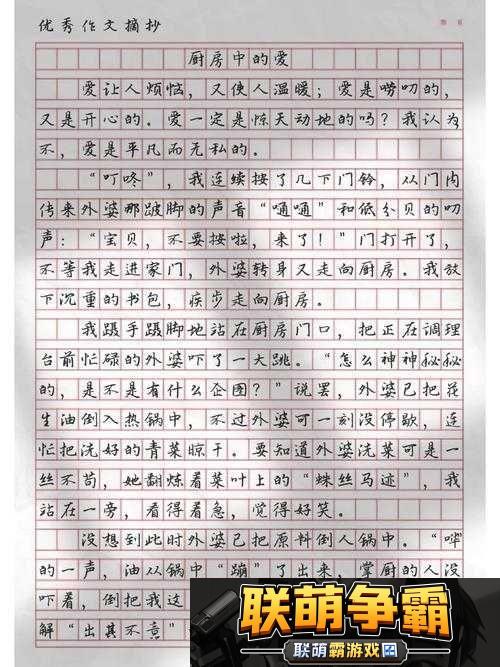 优秀作文摘抄
厨房中的爱
爱让人烦恼，又使人温暖；爱是唠叨的，
又是开心的。爱一定是惊天动地的吗？我认为
不，爱是平凡而无私的。
“叮咚”，我连续按了几下门铃，从门内
传来外婆那跛脚的声音“嗵嗵”和低分贝的叨
声：“宝贝，不要按啦，来了！”门打开了，
不等我走进家门，外婆转身又走向厨房。我放
下沉重的书包，疾步走向厨房。
我蹑手蹑脚地站在厨房门口，把正在调理
台前忙碌的外婆吓了一大跳。“怎么神神秘秘
的，是不是有什么企图？”说罢，外婆已把花
生油倒入热锅中，不过外婆可一刻没停歇，连
忙把洗好的青菜晾干。要知道外婆洗菜可是一
丝不苟，她翻炼着菜叶上的“蛛丝马迹”，我
站在一旁，看得着急，觉得好笑。
没想到此时外婆已把原料倒人锅中。“哗”
的一声，油从锅中“蹦”了出来，掌厨的人没
吓着，倒把我这
解“出其不意”
联萌争霸
联萌霸游戏网